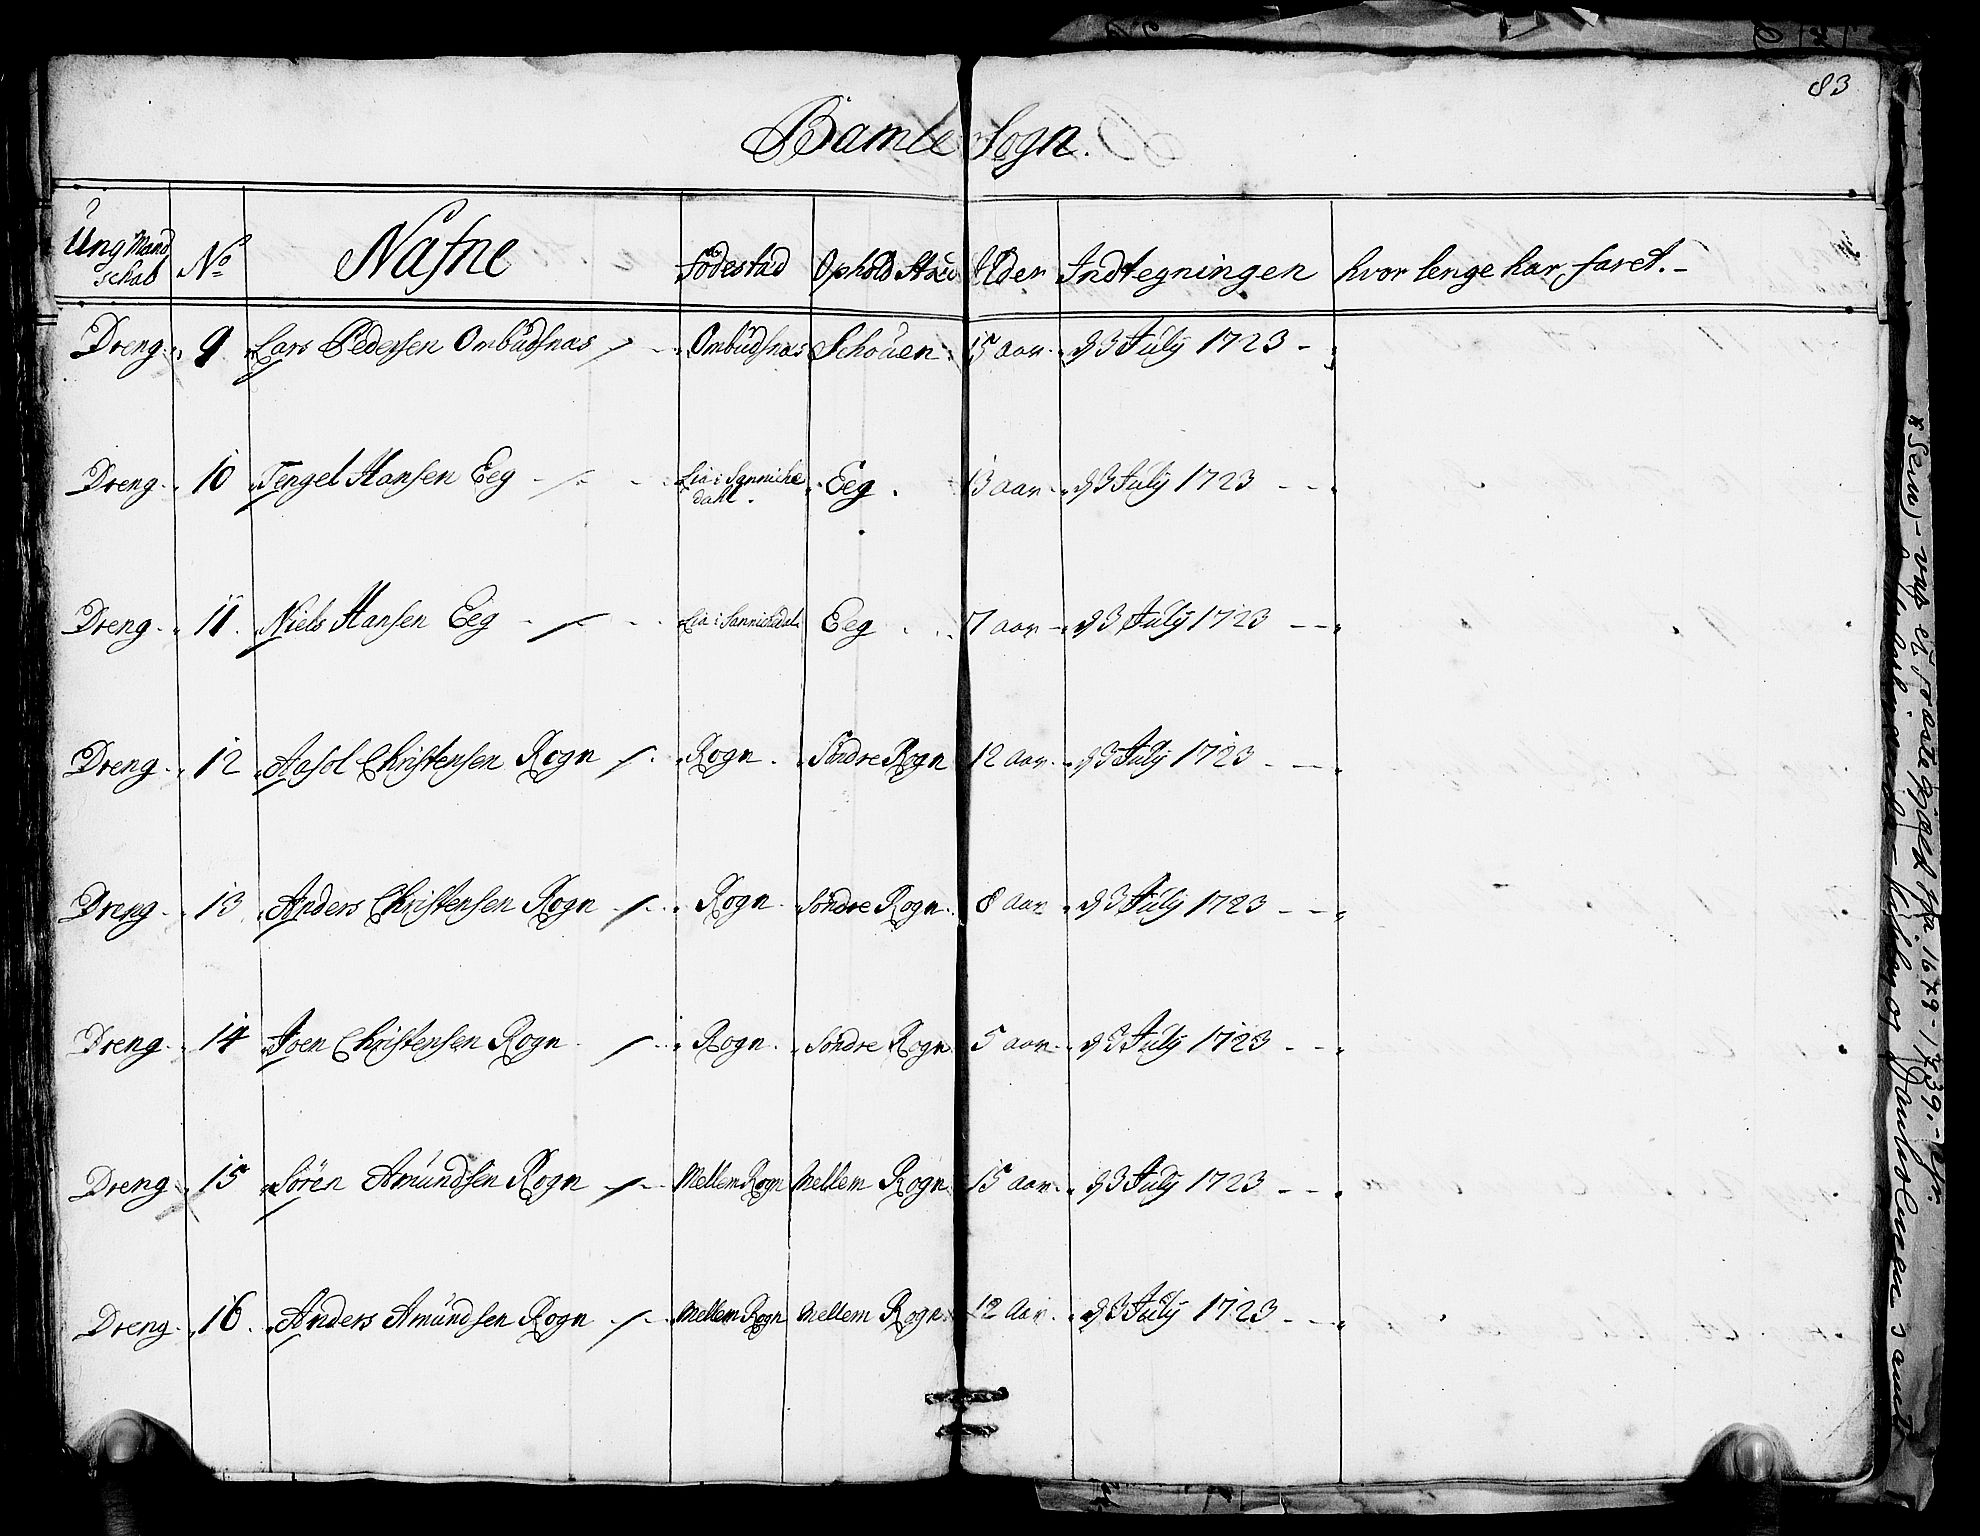 83
Bamle Sogn.
Ung Mand schab No Nafne Födestad Ophold Stæd Alder Indtegningen hvor lenge har faret.
Dreng 9 Lars Pedersen Ombudsnæs Ombudsnæs Schouen 15 aar d 3 July 1723
Dreng 10 Tengel Hansen Eeg Lia i Sannicke dahl. Eeg 13 aar d 3 July 1723
Dreng 11 Niels Hansen Eeg Lia i Sannickedal Eeg 7 aar d 3 July 1723
Dreng 12 Aasol Christensen Rogn Rogn Söndre Rogn 12 aar d 3 July 1723
Dreng 13 Anders Christensen Rogn Rogn Söndre Rogn 8 aar d 3 July 1723
Dreng 14 Joen Christensen Rogn Rogn Söndre Rogn 5 aar d 3 July 1723
Dreng 15 Sören Amundsen Rogn Mellem Rogn Mellem Rogn 15 aar d 3 July 1723
Dreng 16 Anders Amundsen Rogn Mellem Rogn Mellem Rogn 12 aar d 3 July 1723